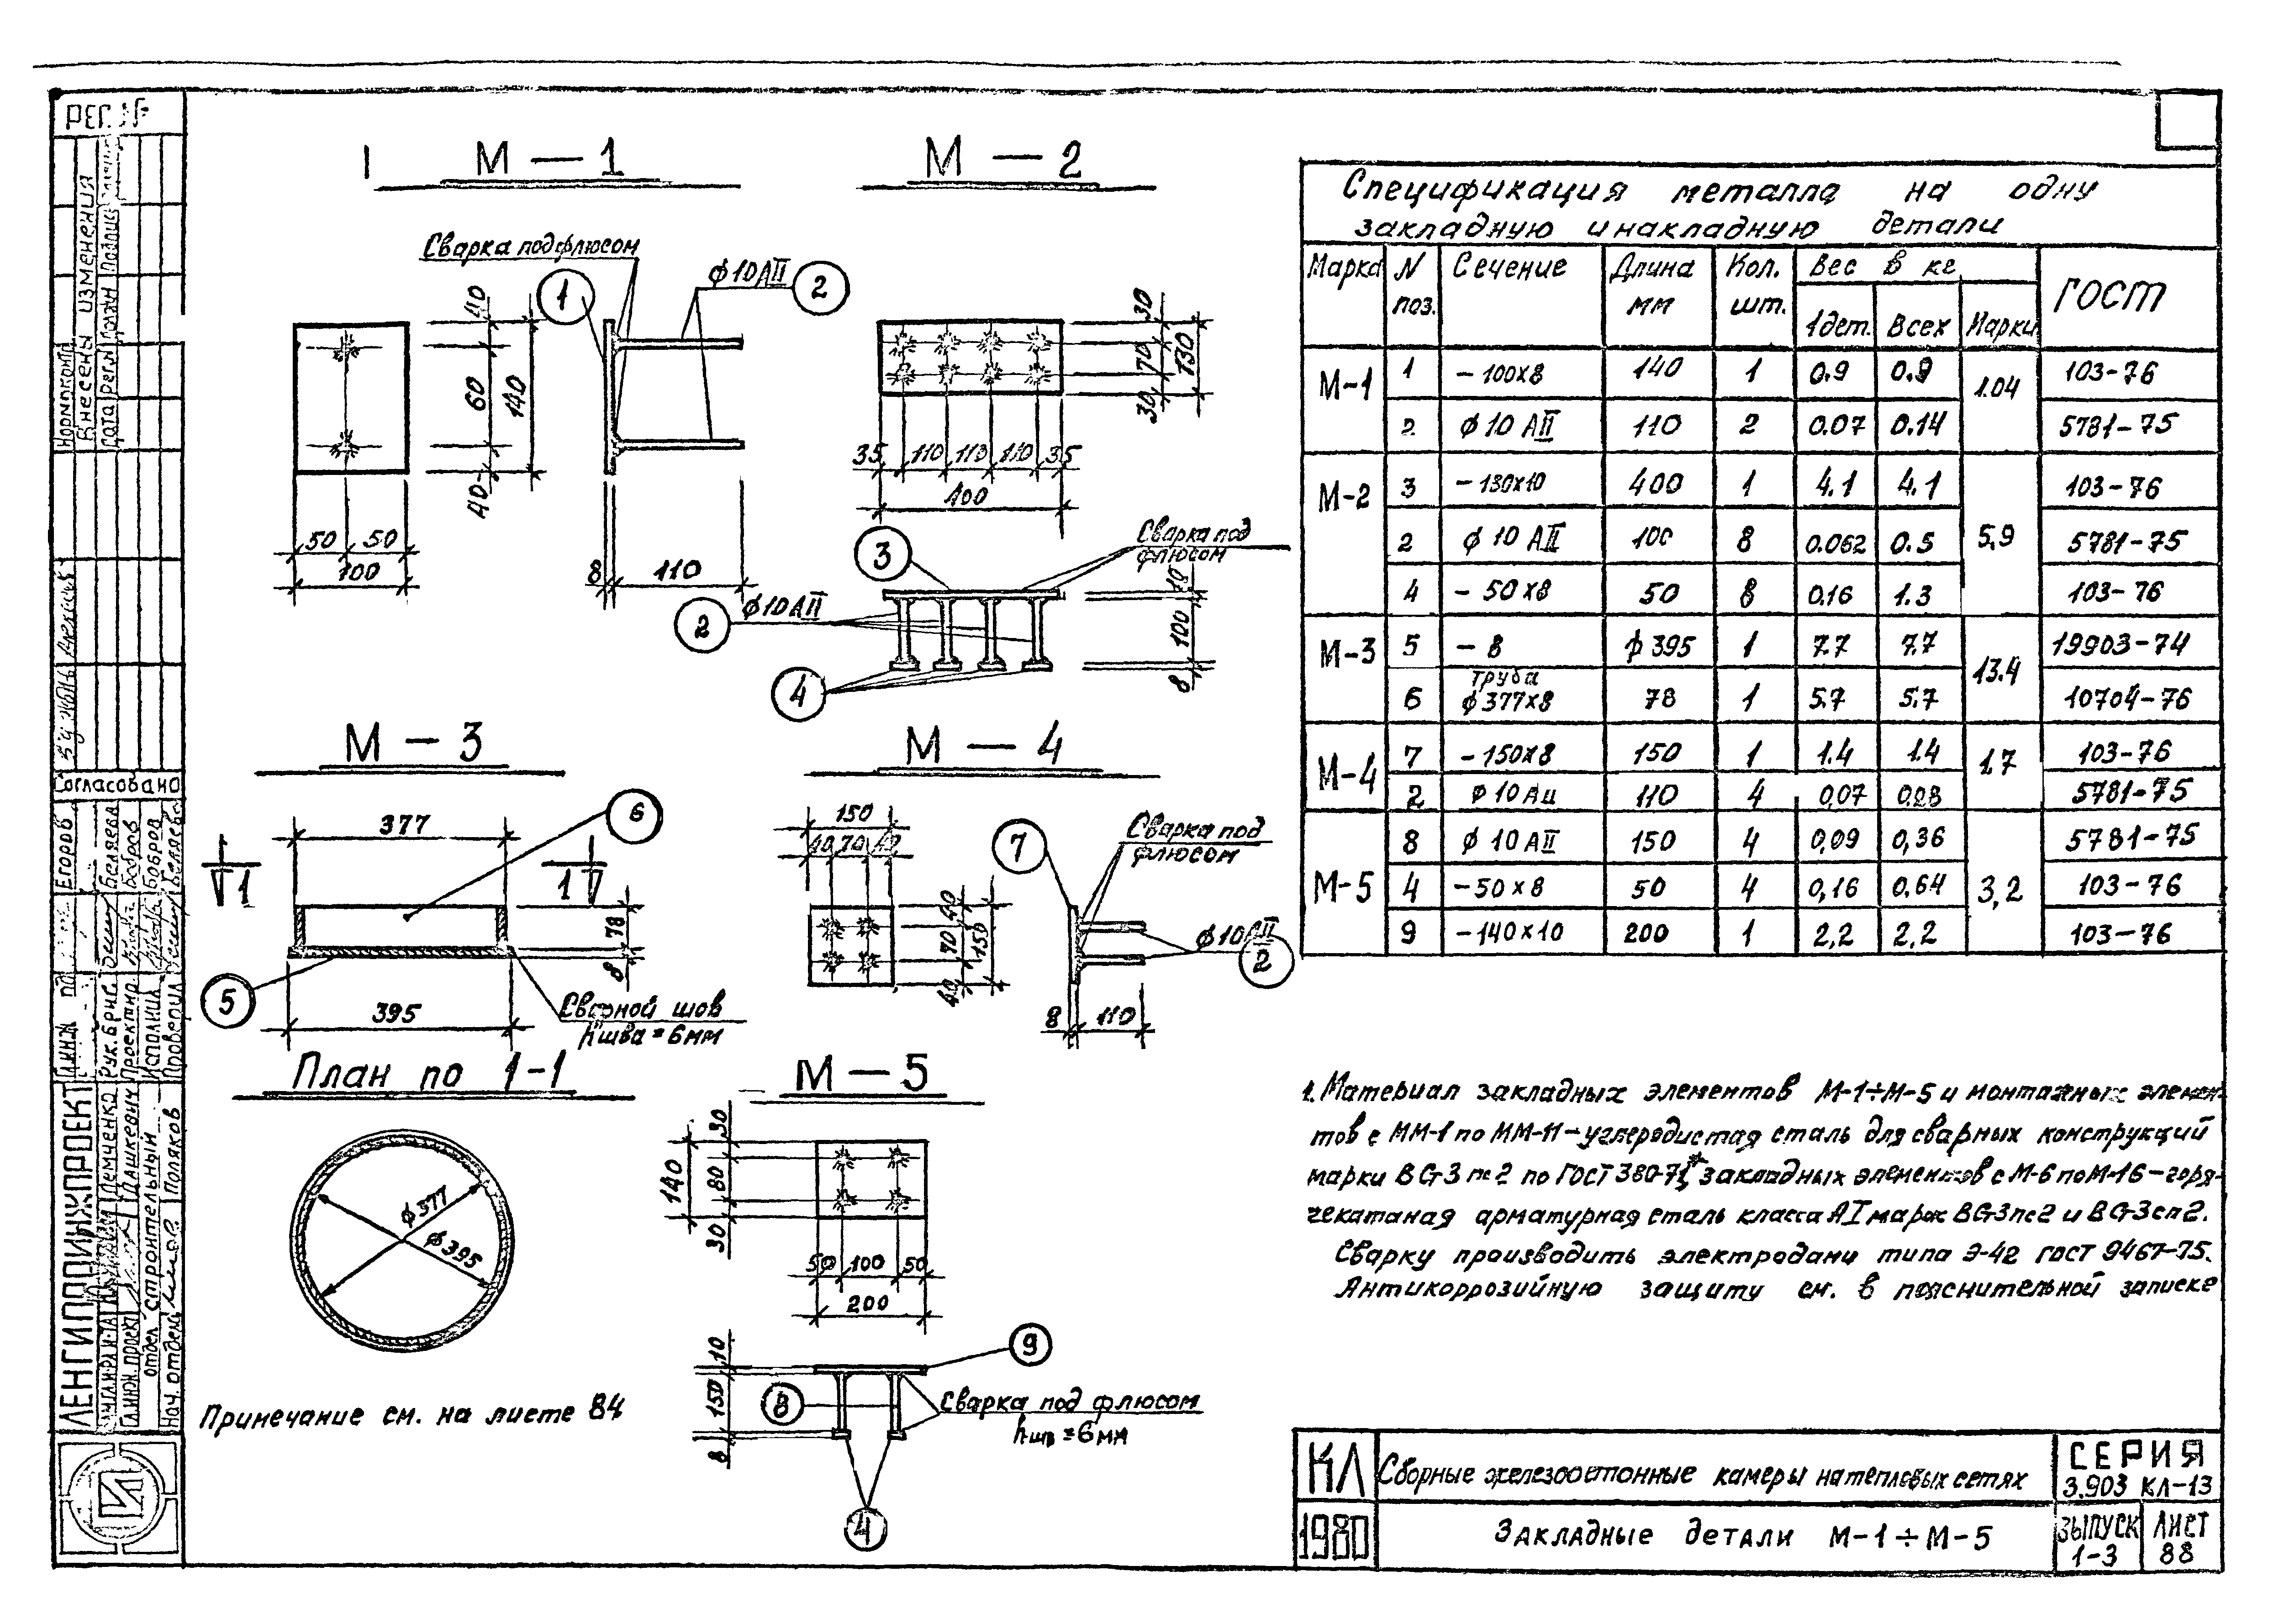 М — 1
М — 2
Сварка под флюсом
1
ϕ10АII
2
40
60
140
40
50
50
100
8
110
30
70
130
30
35
110
110
110
35
400
3
Сварка под
флюсом
ϕ10АII
2
4
10
100
8
М — 3
М — 4
377
6
1
1
78
8
5
395
Сварной шов
hшва = 6мм
План по 1-1
ϕ377
ϕ395
150
40 70 40
7
Сварка под
флюсом
40
70
150
40
ϕ10АII
2
8
110
М — 5
30
80
140
30
50
100
50
200
10
150
8
9
8
Сварка под флюсом
hшв = 6мм
4
Примечание см. на листе 84
Спецификация металла на одну
закладную и накладную детали
Марка N поз. Сечение Длина мм Кол. шт. Вес в кг ГОСТ
1 дет. Всех Марки
М-1 1 - 100х8 140 1 0.9 0.9 1.04 103-76
2 ϕ10 АII 110 2 0.07 0.14 5781-75
М-2 3 - 130х10 400 1 4.1 4.1 5,9 103-76
2 ϕ10 АII 100 8 0.062 0.5 5781-75
4 - 50х8 50 8 0.16 1.3 103-76
М-3 5 - 8 ϕ395 1 7.7 7.7 13.4 19903-74
6 Труба ϕ377х8 78 1 5.7 5.7 10704-76
М-4 7 - 150х8 150 1 1.4 1.4 1.7 103-76
2 ϕ10 АII 110 4 0,07 0.28 5781-75
М-5 8 ϕ10 АII 150 4 0,09 0,36 3,2 5781-75
4 - 50х8 50 4 0,16 0,64 103-76
9 - 140х10 200 1 2,2 2,2 103-76
1. Материал закладных элементов М-1÷М-5 и монтажных элемен-
тов с ММ-1 по ММ-11 - углеродистая сталь для сварных конструкций
марки ВСт3пс2 по ГОСТ 380-71*, закладных элементов с М-6 по М-16 - горя-
чекатаная арматурная сталь класса АI марок ВСт3пс2 и ВСт3сп2.
Сварку производить электродами типа Э-42 ГОСТ 9467-75.
Антикоррозийную защиту см. в пояснительной записке
КЛ
Сборные железобетонные камеры на тепловых сетях
СЕРИЯ
3.903 КЛ-13
1980
Закладные детали М-1÷М-5
ВЫПУСК
1-3
ЛИСТ
88
РЕГ. №
Внесены изменения
Дата
Нормоконтр.
Согласовано
Егоров
Беляева
Бобров
Бобров
Беляева
Рук. бриг.
Проектир.
Исполнил
Проверил
ЛЕНГИПРОИНЖПРОЕКТ
Демченко
Гл.инж. проект
Дашкевич
отдел строительный
Нач. отдел
Поляков